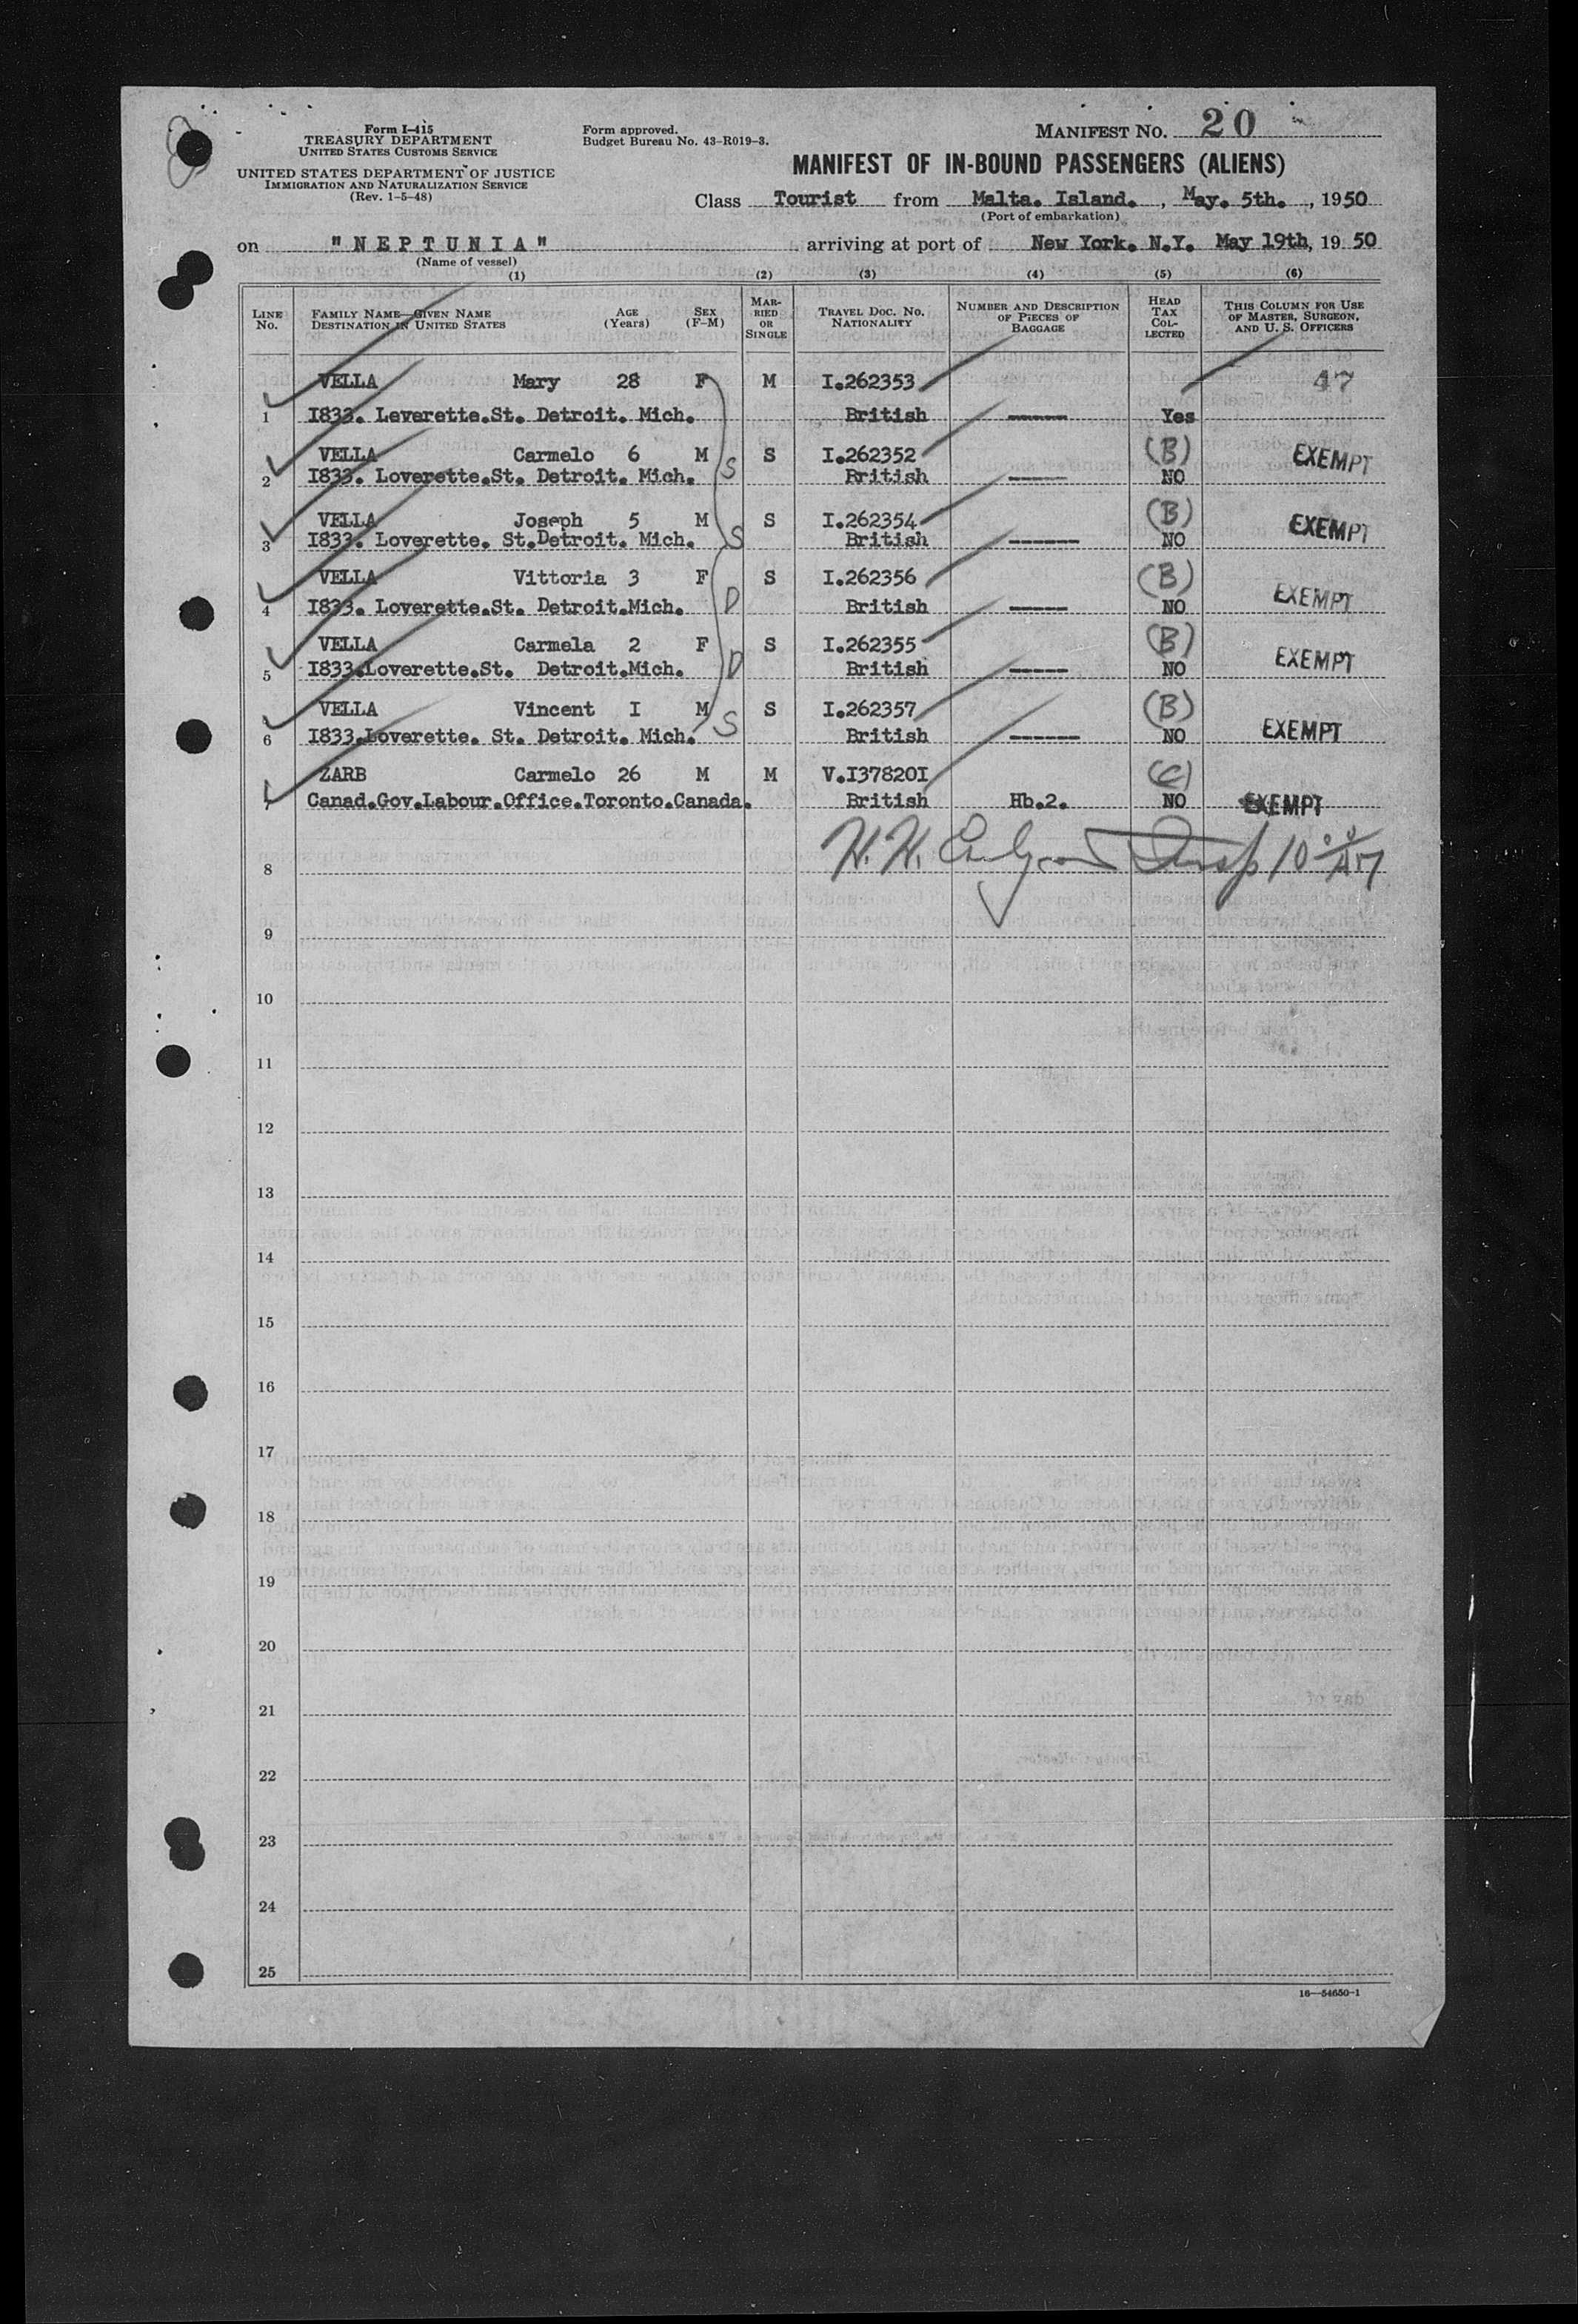 Form I-415
TREASURY DEPARTMENT
UNITED STATES CUSTOMS SERVICE
UNITED STATES DEPARTMENT OF JUSTICE
IMMIGRATION AND NATURALIZATION SERVICE
(Rev. 1-5-48)
Form approved.
Budget Bureau No. 43-R019-3.
MANIFEST NO. 20
MANIFEST OF IN-BOUND PASSENGERS (ALIENS)
Class Tourist from Malta. Island. , May. 5th. , 1950
(Port of embarkation)
on "NEPTUNIA" arriving at port of New York. N.Y. May 19th, 1950
(Name of vessel)
(1) (2) (3) (4) (5) (6)
LINE No. FAMILY NAME—GIVEN NAME DESTINATION IN UNITED STATES AGE (Years) SEX (F-M) MARRIED OR SINGLE TRAVEL DOC. NO. NATIONALITY NUMBER AND DESCRIPTION OF PIECES OF BAGGAGE HEAD TAX COLLECTED THIS COLUMN FOR USE OF MASTER, SURGEON, AND U. S. OFFICERS
VELLA Mary 28 F M I.262353 47
1 I833. Leverette.St. Detroit. Mich. British ------ Yes
VELLA Carmelo 6 M S I.262352 (B) EXEMPT
2 I833. Loverette.St. Detroit. Mich. S British ------ NO
VELLA Joseph 5 M S I.262354 (B) EXEMPT
3 I833. Loverette. St.Detroit. Mich. S British ------- NO
VELLA Vittoria 3 F S I.262356 (B) EXEMPT
4 I833. Loverette.St. Detroit.Mich. D British ------ NO
VELLA Carmela 2 F S I.262355 (B) EXEMPT
5 I833.Loverette.St. Detroit.Mich. D British ------ NO
VELLA Vincent I M S I.262357 (B) EXEMPT
6 I833.Loverette. St. Detroit. Mich. S British ------- NO
ZARB Carmelo 26 M M V.I37820I (C)
7 Canad.Gov.Labour.Office.Toronto.Canada. British Hb.2. NO EXEMPT
H. H.
8
9
10
11
12
13
14
15
16
17
18
19
20
21
22
23
24
25
16—54650-1